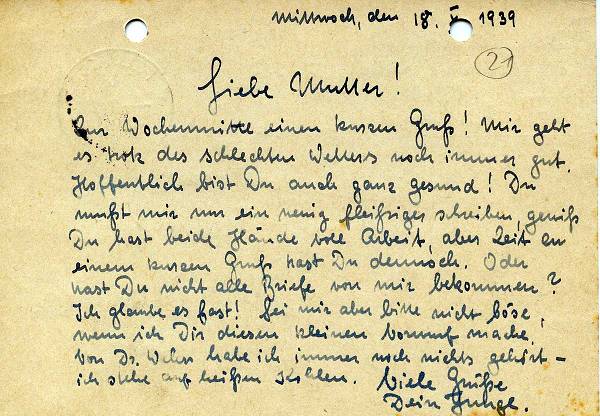 Mittwoch, den 18. X. 1939
21
Liebe Mutter!
Zur Wochenmitte einen kurzen Gruß! Mir geht
es trotz des schlechten Wetters noch immer gut.
Hoffentlich bist Du auch ganz gesund! Du
mußt mir nur ein wenig fleißiger schreiben, gewiß
Du hast beide Hände voll Arbeit, aber Zeit zu
einem kurzen Gruß hast Du dennoch. Oder
hast Du nicht alle Briefe von mir bekommen?
Ich glaube es fast! Sei mir aber bitte nicht böse,
wenn ich Dir diesen kleinen Vorwurf mache.
Von Dr. habe ich immer noch nichts gehört –
ich stehe auf heißen Kohlen. Viele Grüße
Dein Junge.